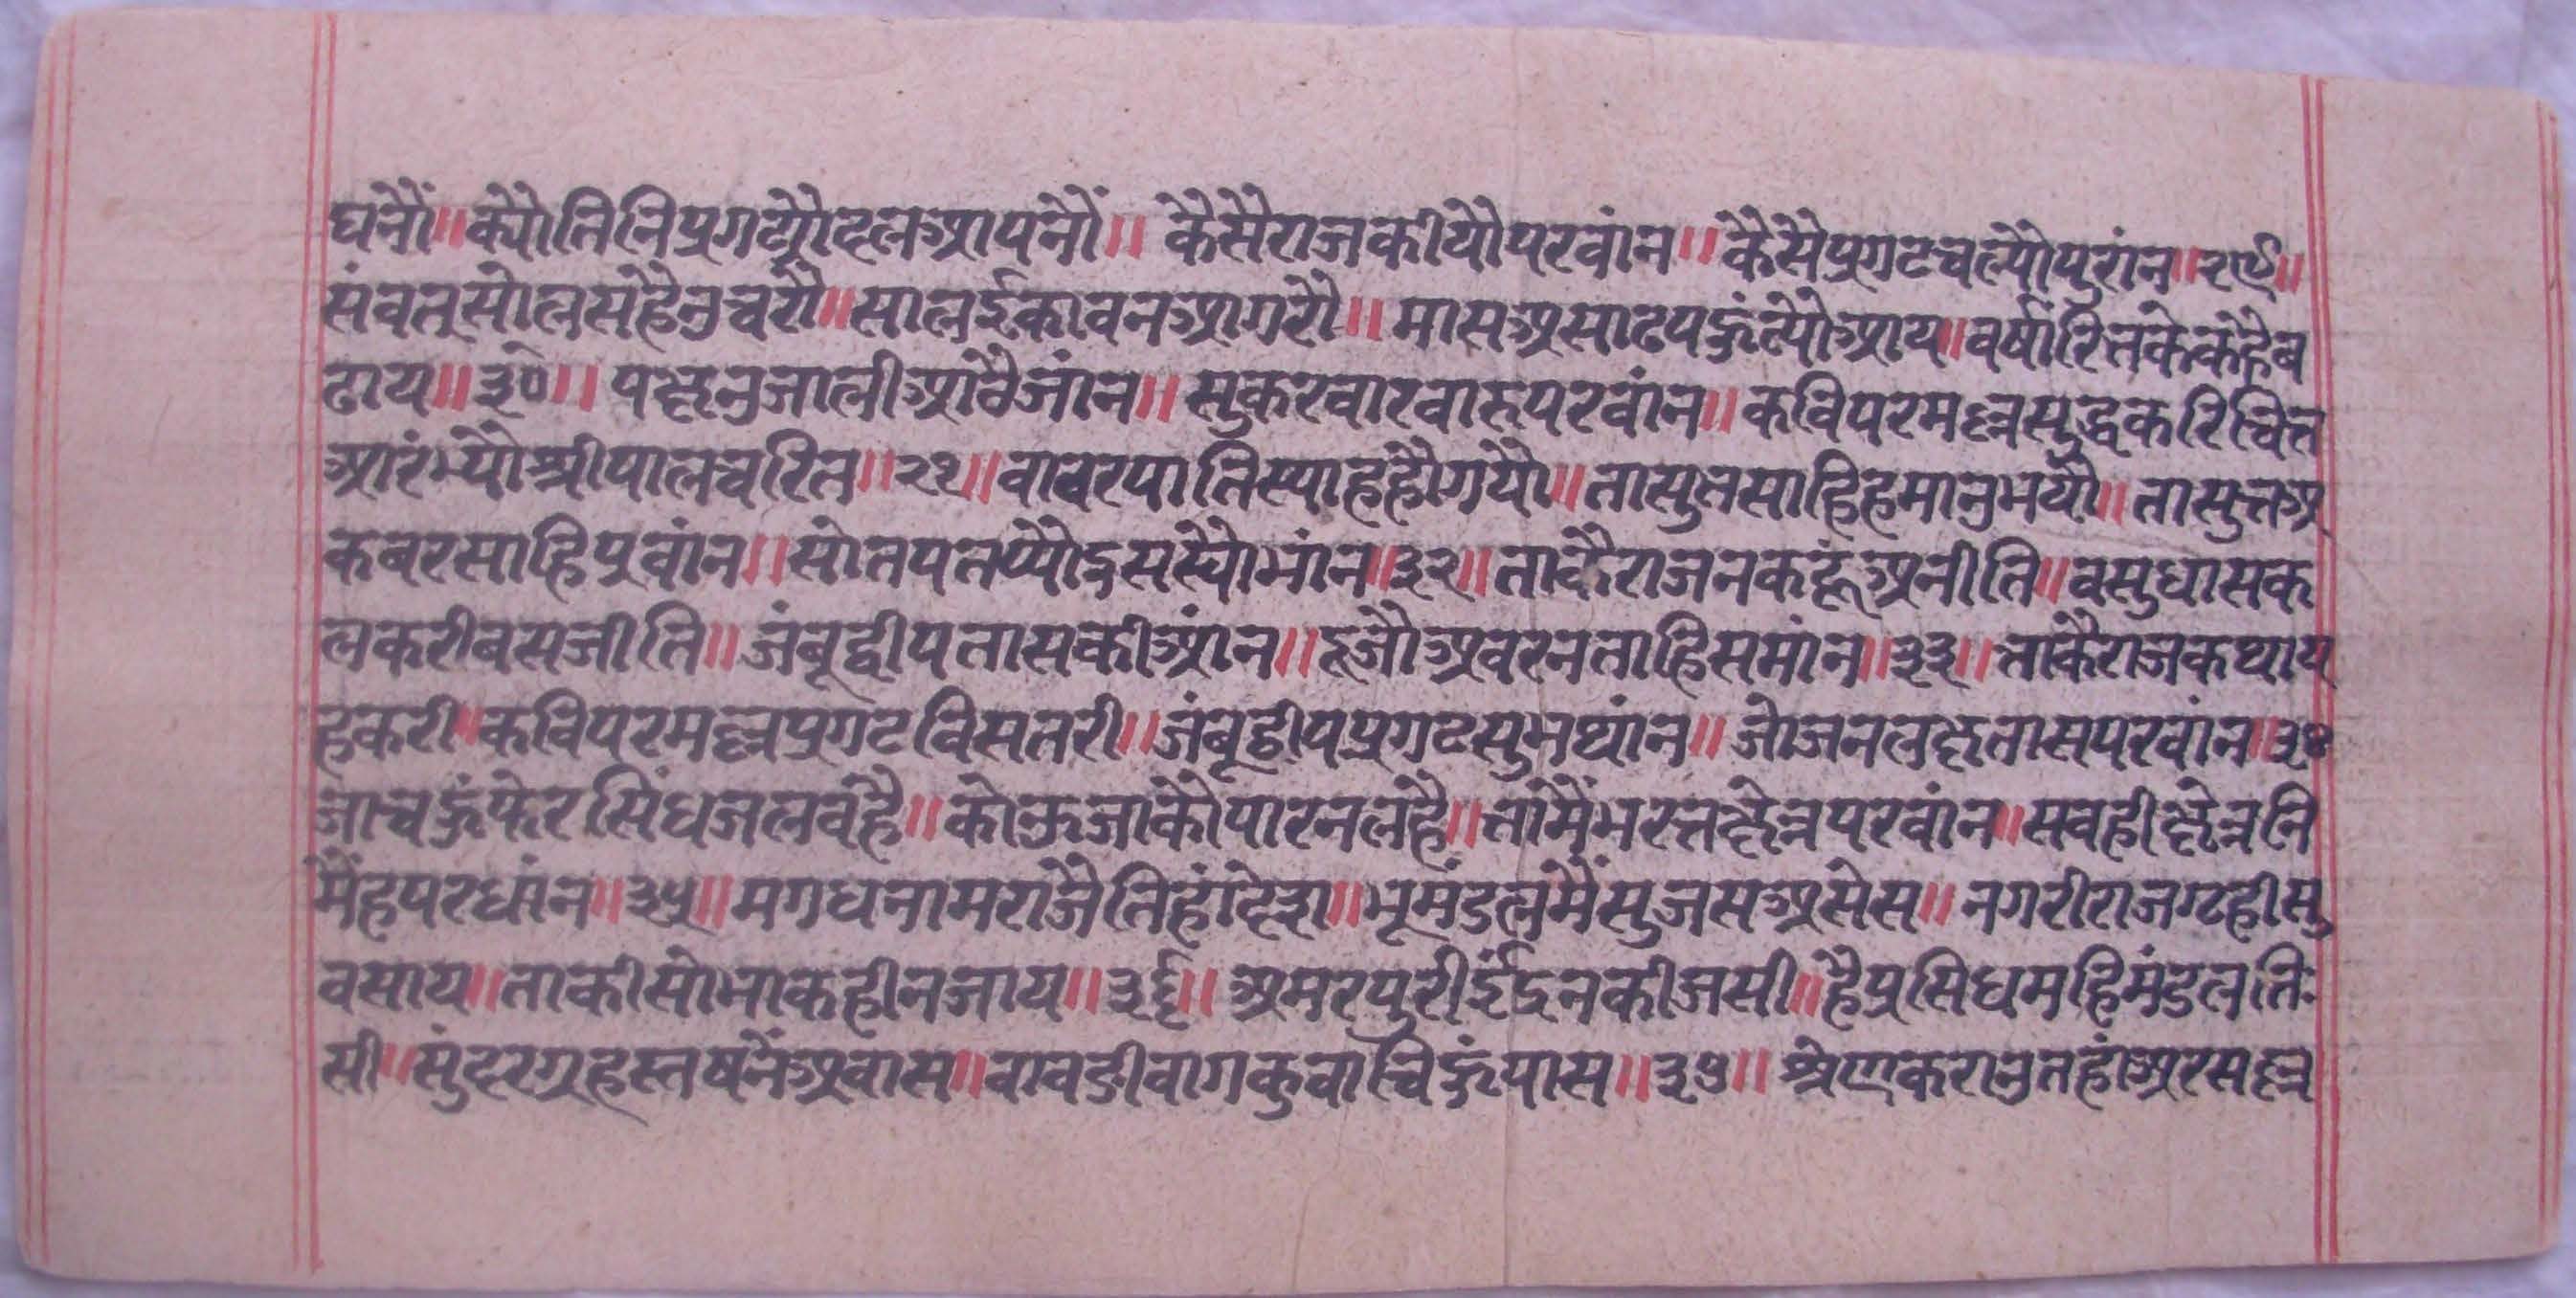 घनौं॥क्यौतिनिप्रगट्यौदलआपनौं॥ कैसैराजकीयौपरवांन॥कैसैप्रगटचल्यौपुरांन॥२९॥
संवतसोलसहैनुचरौ॥सालईकावनआगरौ॥मासअसाढपहुंत्यौआय॥वर्षारितकेकहैब
ढाय॥३०॥पछनुजालीआवैजांन॥सुकरवारवारुपरवांन॥कविपरमल्लसुद्धकरिचित
आरंभ्यौश्रीपालचरित॥२१॥वावरपातिस्याहहौगयौ॥तासुतसाहिहमानुभयौ॥तासुतअ
कबरसाहिप्रवांन॥सोतपतप्यौदुसस्यौभांन॥३२॥ताकैराजनकहूंअनीति॥वसुधासक
लकरीबसजीति॥जंबूद्वीपतासकीआंन॥दूजौअवरनताहिसमांन॥३३॥ताकैराजकथाय
हकरी॥कविपरमल्लप्रगटविसतरी॥जंबूद्वीपप्रगटसुभथांन॥जोजनलछतासपरवांन॥३४
जाचहुंफेरसिंधजलवहै॥कोऊजाकौपारनलहै॥तामैंभरतछेत्रपरवांन॥सवहीछेत्रनि
मैंहपरधांन॥३५॥मगधनामराजैतिहांदेश॥भूमंडलमैंसुजसअसेस॥नगरीराजग्रहीसु
वसाय॥ताकीसोभाकहीनजाय॥३६॥अमरपुरीइंद्रनकीजसी॥हैप्रसिधमहिमंडलति
सी॥सुंदरग्रहस्तषनैंअवास॥वावडीवागकुवाचिहुंपास॥३७॥श्रेणकरानुतहांअरसल्ल